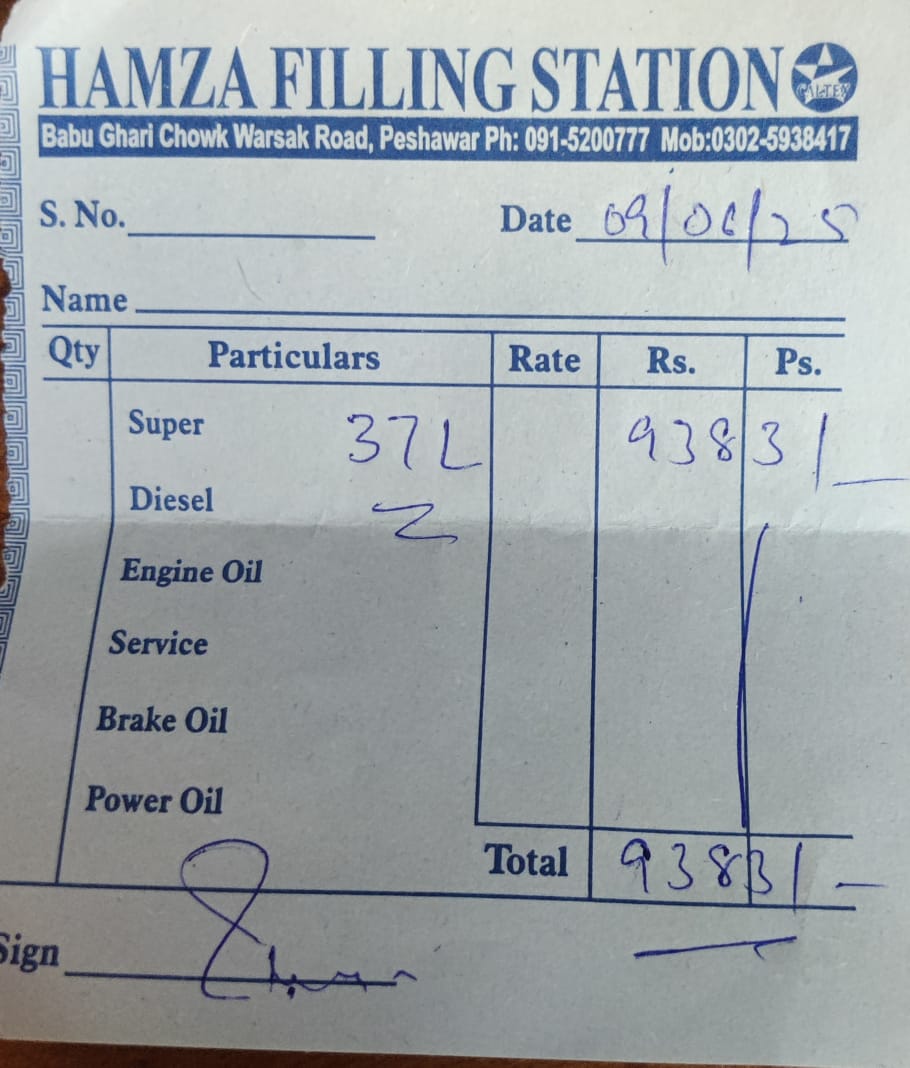 HAMZA FILLING STATION CALTEX
Babu Ghari Chowk Warsak Road, Peshawar Ph: 091-5200777 Mob:0302-5938417
S. No. Date 09/06/25
Name
Qty Particulars Rate Rs. Ps.
Super 37L 9383/-
Diesel
Engine Oil
Service
Brake Oil
Power Oil
Total 9383/-
Sign